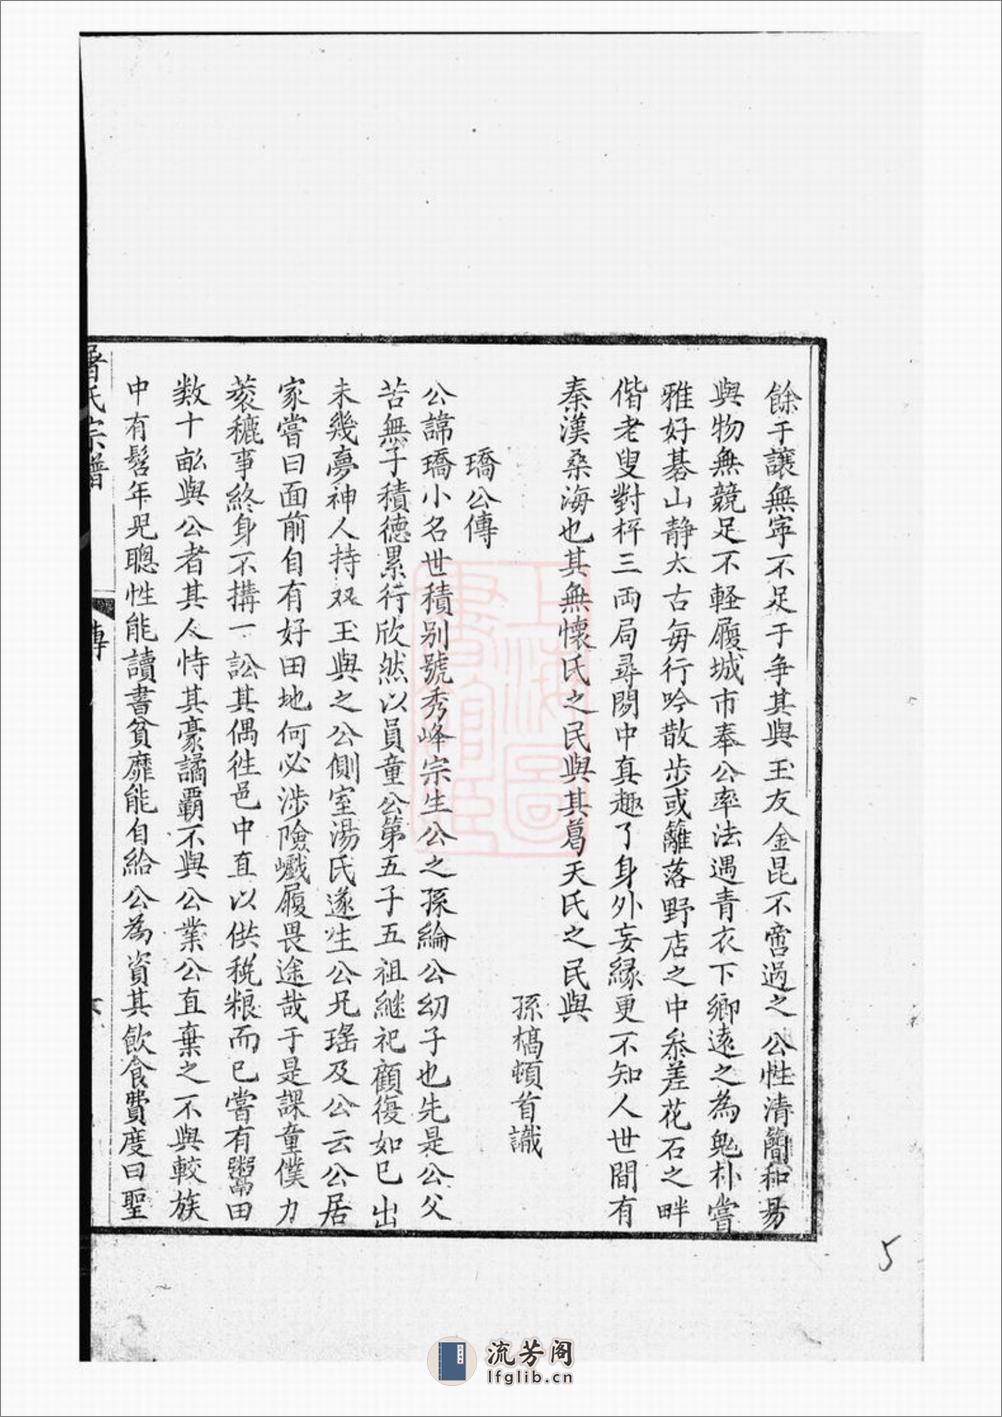 餘于讓無寧不足于争其與玉友金昆不啻過之公性清簡和易
與物無競足不軽履城市奉公率法遇青衣下鄉遠之為鬼朴嘗
雅好碁山静太古每行吟散步或籬落野店之中叅差花石之畔
偕老叟對枰三両局尋閒中真趣了身外妄緣更不知人世間有
秦漢桑海也其無懷氏之民與其葛天氏之民與
孫槁頓首識
璚公傳
公諱璚小名世積别號秀峰宗生公之孫綸公幼子也先是公父
苦無子積德累行欣然以員童公第五子五祖継祀顧復如已出
未幾夢神人持双玉與之公側室湯氏遂生公兄瑤及公云公居
家嘗曰面前自有好田地何必涉險巇履畏途哉于是課童僕力
蓘穮事終身不搆一訟其偶徃邑中直以供税粮而已嘗有鬻田
数十畝與公者其人恃其豪譎覇不與公業公直棄之不與較族
中有髫年児聰性能讀書貧靡能自給公為資其飲食費度曰聖
氏宗譜
傳
上海圖書館藏
5
流芳阁
lfglib.cn